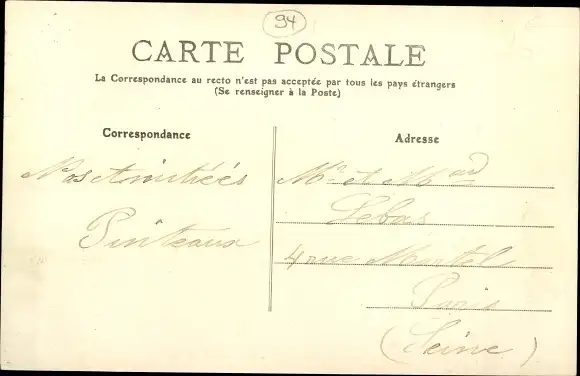 94
CARTE POSTALE
La Correspondance au recto n'est pas acceptée par tous les pays étrangers
(Se renseigner à la Poste)
Correspondance
Adresse
Nos Amitiés
Pinteaux
Mr et Mad
Lebas
4 rue Martel
Paris
(Seine)